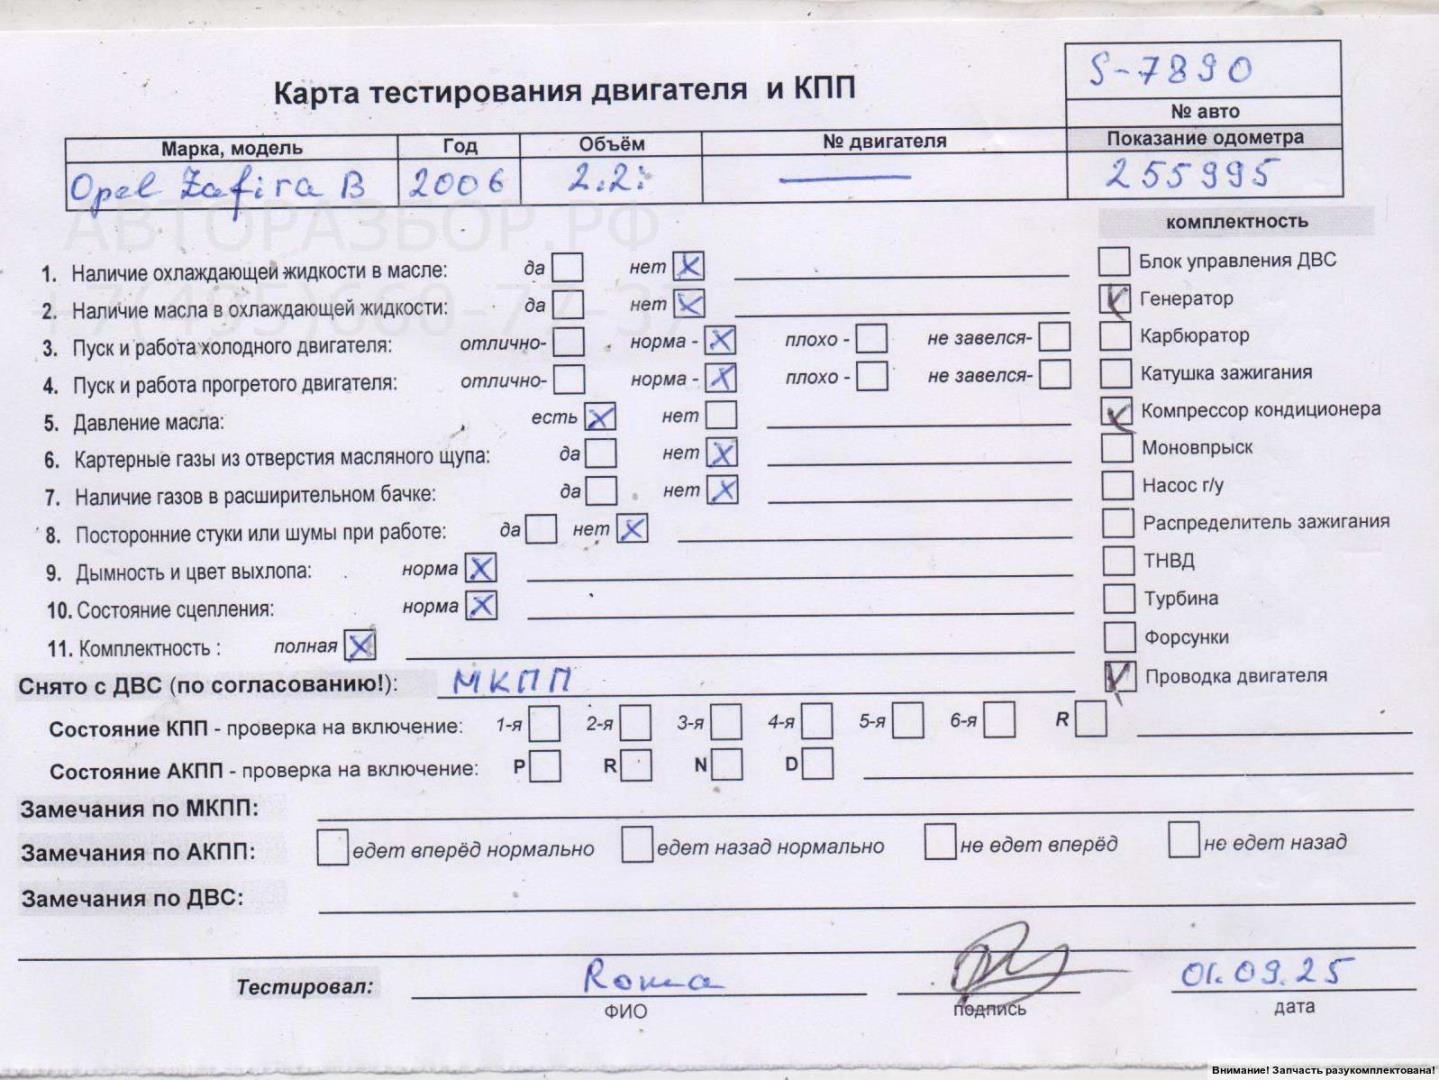 S-7890
Карта тестирования двигателя и КПП
№ авто
Марка, модель Год Объём № двигателя Показание одометра
Opel Zafira B 2006 2.2i 255995
АВТОРАЗБОР.РФ
комплектность
1. Наличие охлаждающей жидкости в масле: да нет Блок управления ДВС
2. Наличие масла в охлаждающей жидкости: да нет Генератор
3. Пуск и работа холодного двигателя: отлично- норма - плохо - не завелся- Карбюратор
4. Пуск и работа прогретого двигателя: отлично- норма - плохо - не завелся- Катушка зажигания
5. Давление масла: есть нет Компрессор кондиционера
6. Картерные газы из отверстия масляного щупа: да нет Моновпрыск
7. Наличие газов в расширительном бачке: да нет Насос г/у
8. Посторонние стуки или шумы при работе: да нет Распределитель зажигания
9. Дымность и цвет выхлопа: норма ТНВД
10. Состояние сцепления: норма Турбина
11. Комплектность : полная Форсунки
Снято с ДВС (по согласованию!): МКПП Проводка двигателя
Состояние КПП - проверка на включение: 1-я 2-я 3-я 4-я 5-я 6-я R
Состояние АКПП - проверка на включение: P R N D
Замечания по МКПП:
Замечания по АКПП: едет вперёд нормально едет назад нормально не едет вперёд не едет назад
Замечания по ДВС:
Тестировал: Рома 01.09.25
ФИО подпись дата
Внимание! Запчасть разукомплектована!